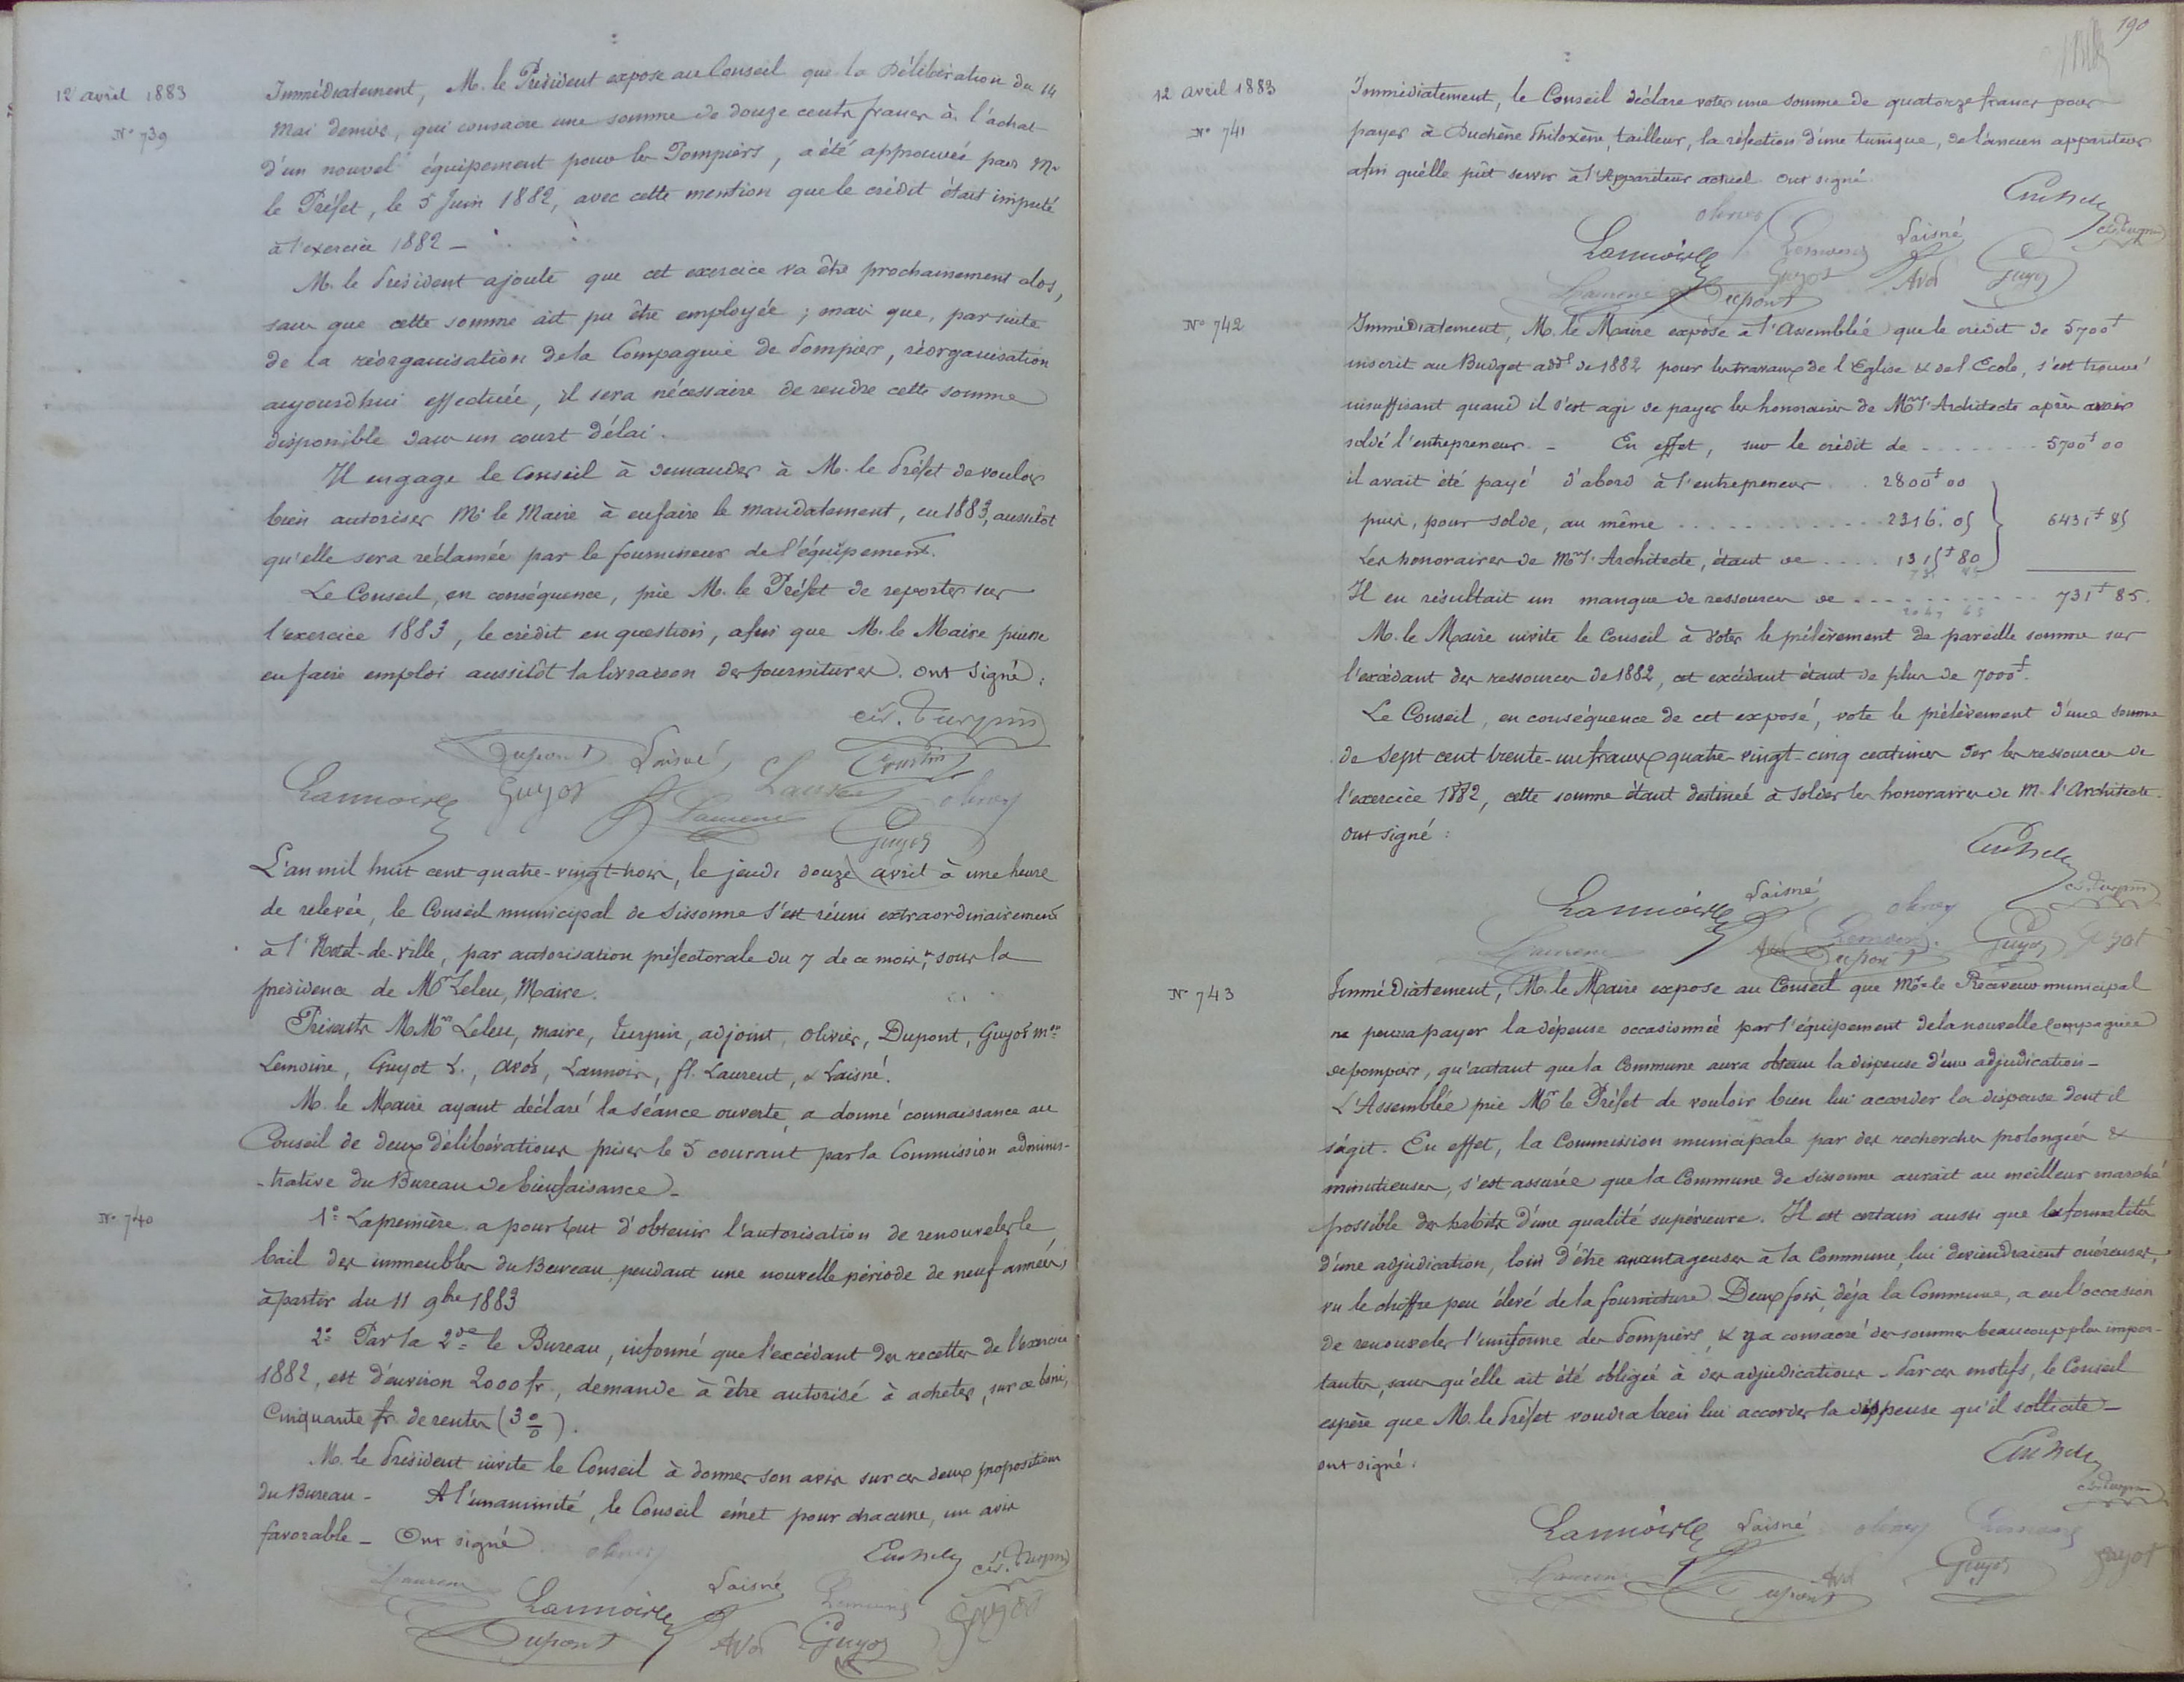 12 avril 1883
N° 739
Immédiatement, M. le Président expose au Conseil que la Délibération du 14
mai dernier, qui consacre une somme de douze cents francs à l'achat
d'un nouvel équipement pour les Pompiers, a été approuvée par M.
le Préfet, le 5 Juin 1882, avec cette mention que le crédit était imputé
à l'exercice 1882 -
M. le Président ajoute que cet exercice va être prochainement clos,
sans que cette somme ait pu être employée ; mais que, par suite
de la réorganisation de la Compagnie de Pompiers, réorganisation
aujourd'hui effectuée, il sera nécessaire de rendre cette somme
disponible dans un court délai.
Il engage le Conseil à demander à M. le Préfet de vouloir
bien autoriser Mr le Maire à en faire le mandatement, en 1883, aussitôt
qu'elle sera réclamée par le fournisseur de l'équipement.
Le Conseil, en conséquence, prie M. le Préfet de reporter sur
l'exercice 1883, le crédit en question, afin que M. le Maire puisse
en faire emploi aussitôt la livraison des fournitures. Ont Signé :
Turpin
Dupont Laisné
Lannois Guyot Laurent olivier
Guyot
L'an mil huit cent quatre-vingt-trois, le jeudi douze avril à une heure
de relevée, le Conseil municipal de Sissonne s'est réuni extraordinairement
à l'Hotel-de-ville, par autorisation préfectorale du 7 de ce mois, sous la
présidence de Mr Leleu, Maire.
Présents M.Mrs Leleu, maire, Turpin, adjoint, Olivier, Dupont, Guyot
Lemoine, Guyot L., Avot, Lannois, fl. Laurent, & Laisné.
M. le Maire ayant déclaré la séance ouverte, a donné connaissance au
Conseil de deux délibérations prises le 5 courant par la Commission adminis-
-trative du Bureau de bienfaisance -
N° 740
1° La première a pour but d'obtenir l'autorisation de renouveler le
bail des immeubles du Bureau pendant une nouvelle période de neuf années,
à partir du 11 9bre 1883
2° Par la 2de le Bureau, informé que l'excédant des recettes de l'exercice
1882, est d'environ 2000 fr, demande à être autorisé à acheter, sur ce boni,
Cinquante fr. de rentes (3 %).
M. le Président invite le Conseil à donner son avis sur ces deux propositions
du Bureau - A l'unanimité, le Conseil émet pour chacune, un avis
favorable - Ont signé olivier
Turpin
Laurent Lannois Laisné Lemoine Guyot
Dupont Avot Guyot
190
12 avril 1883
N° 741
Immédiatement, le Conseil déclare voter une somme de quatorze francs pour
payer à Duchêne Philoxène, tailleur, la réfection d'une tunique, de l'ancien appariteur
afin qu'elle pût servir à l'Appariteur actuel Ont signé.
olivier
Lannois Lemoine Laisné Turpin
Laurent Dupont Guyot Avot Guyot
N° 742
Immédiatement, M. le Maire expose à l'Assemblée que le crédit de 5700f
inscrit au Budget addl de 1882 pour les travaux de l'Eglise & de l'Ecole, s'est trouvé
insuffisant quand il s'est agi de payer les honoraires de Mr l'Architecte après avoir
soldé l'entrepreneur. - En effet, sur le crédit de - - - - - - - 5700f 00
il avait été payé d'abord à l'entrepreneur . . . 2800f 00
puis, pour solde, au même . . . . . . . . . . . . 2316. 05 6431f 85
Les honoraires de Mr l'Architecte, étant de . . . . 1315f 80
Il en résultait un manque de ressources de - - - - - - - - - - 731f 85.
M. le Maire invite le Conseil à voter le prélèvement de pareille somme sur
l'excédant des ressources de 1882, cet excédant étant de plus de 7000f.
Le Conseil, en conséquence de cet exposé, vote le prélèvement d'une somme
de sept cent trente-un francs quatre-vingt-cinq centimes sur les ressources de
l'exercice 1882, cette somme étant destinée à solder les honoraires de M. l'Architecte.
Ont signé :
Lannois Laisné olivier Turpin
Laurent Avot Dupont Lemoine Guyot Guyot
N° 743
Immédiatement, M. le Maire expose au Conseil que Mr le Receveur municipal
ne pourra payer la dépense occasionnée par l'équipement de la nouvelle Compagnie
de pompiers, qu'autant que la Commune aura obtenu la dispense d'une adjudication -
L'Assemblée prie Mr le Préfet de vouloir bien lui accorder la dispense dont il
s'agit. En effet, la Commission municipale par des recherches prolongées &
minutieuses, s'est assurée que la Commune de Sissonne aurait au meilleur marché
possible des habits d'une qualité supérieure. Il est certain aussi que les formalités
d'une adjudication, loin d'être avantageuses à la Commune, lui deviendraient onéreuses,
vu le chiffre peu élevé de la fourniture. Deux fois, déjà la Commune, a eu l'occasion
de renouveler l'uniforme des Pompiers, & y a consacré des sommes beaucoup plus impor-
tantes, sans qu'elle ait été obligée à des adjudications - Par ces motifs, le Conseil
espère que M. le Préfet voudra bien lui accorder la dispense qu'il sollicite -
ont signé.
Turpin
Lannois Laisné olivier Lemoine
Laurent Dupont Avot Guyot Guyot